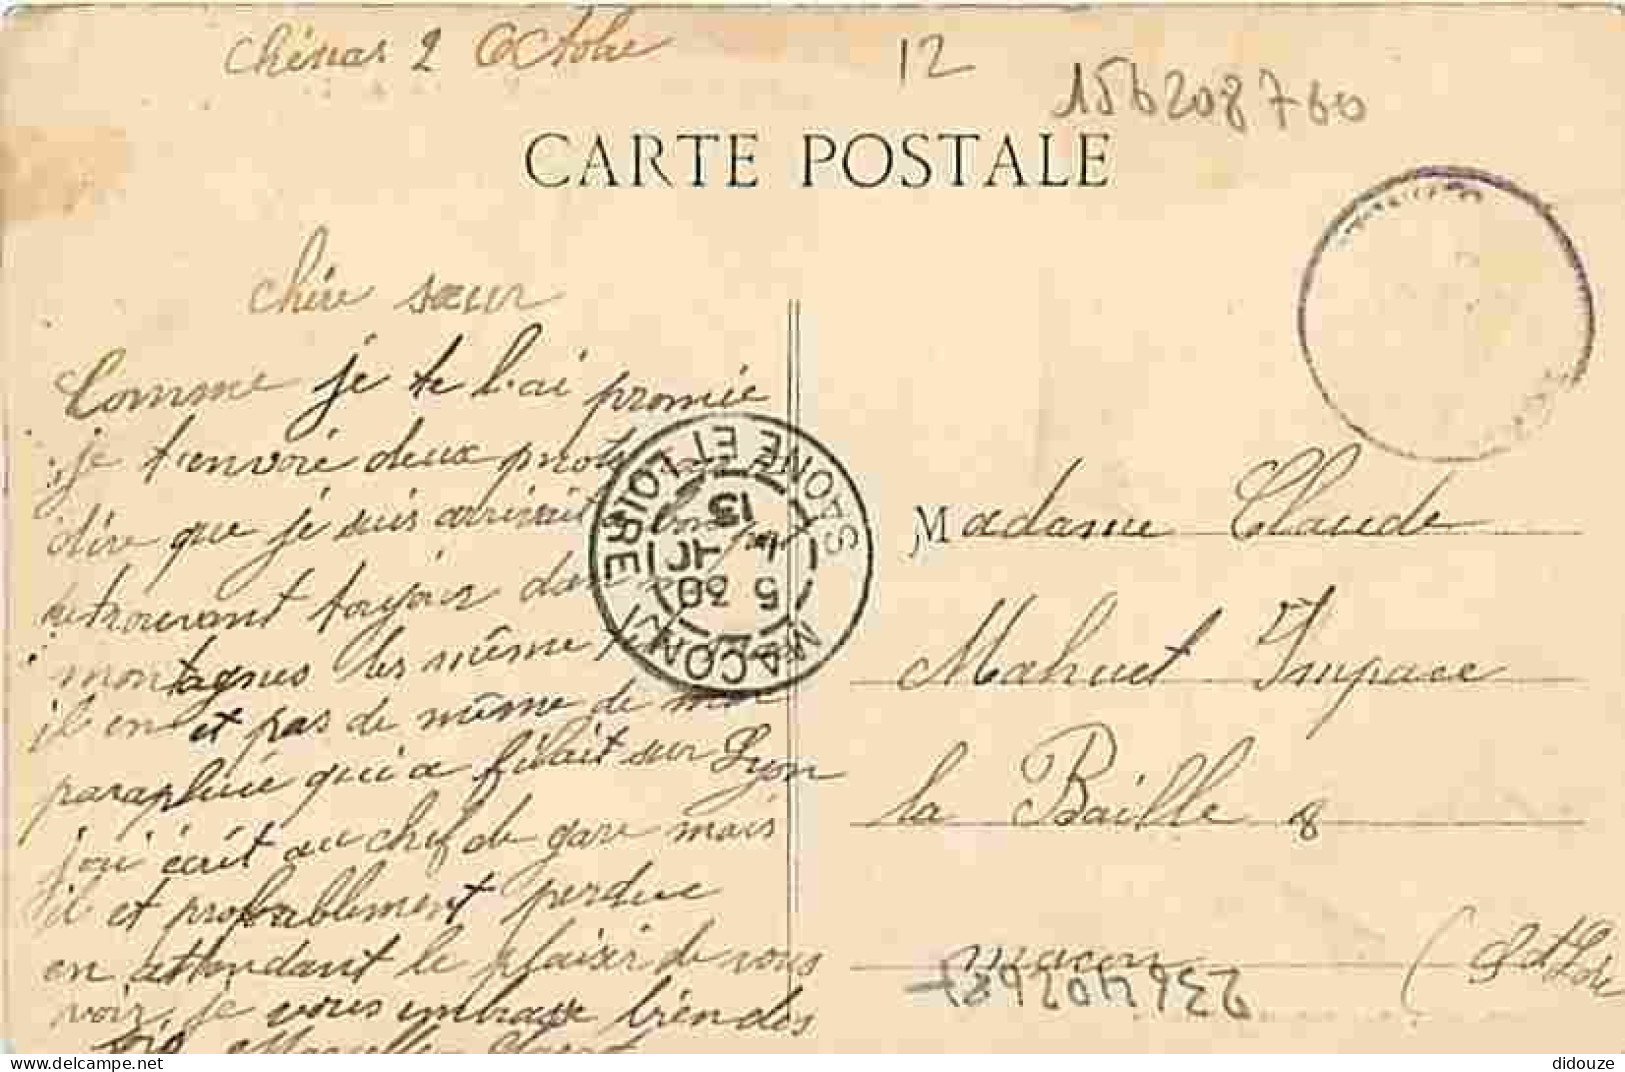 Chénas 2 Octobre
12
156208760
CARTE POSTALE
Chère sœur
Comme je te l'ai promie
je t'envoie deux
dire que je suis
retrouvant toujour
montagnes les même
il en et pas de même de mon
parapluie qui a filait sur Lyon
j'ai écrit au chef de gare mais
il et probablement perdue
en attendant le plaisir de vous
voir, je vous embrasse bien des
fois
MACON
SAONE ET LOIRE
5 30
13
Madame Claude
Mahuet Impace
la Baille 8
Macon (S et Loire
didouze